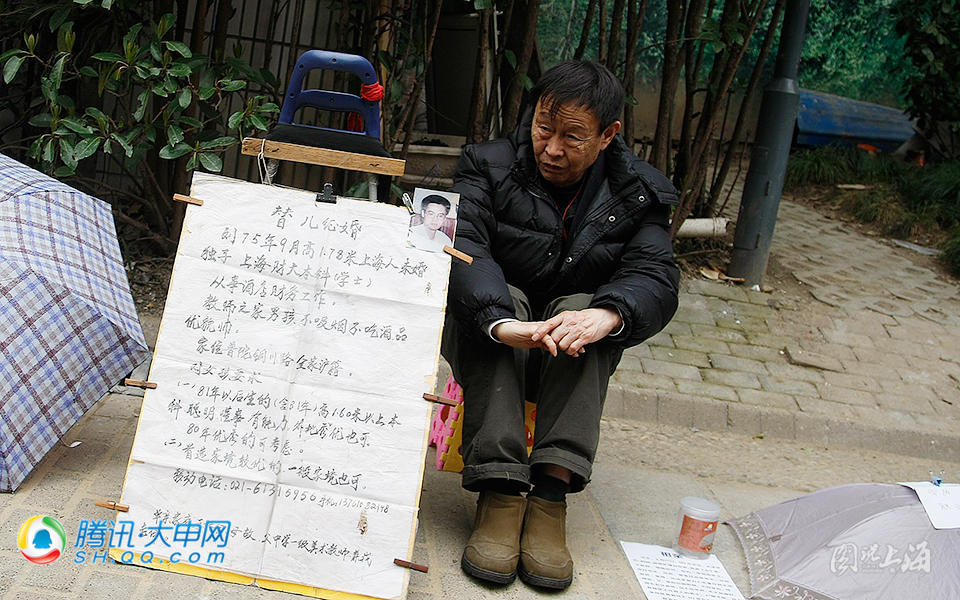 替儿征婚
75年9月高1.78米上海人未婚
独子 上海财大本科(学士)
从事酒店财务工作。
教师之家男孩不吸烟不吃酒品
优貌帅.
家住普陀铜川路全家沪籍.
对女孩要求
(一)81年以后生的(含81年)高1.60米以上本
科聪明懂事有能力外地秀优也可
80年优秀的可考虑。
(二)首选家境较此的.一般家境也可.
移动电话:021-
腾讯·大申网
SH.QQ.COM
图说上海